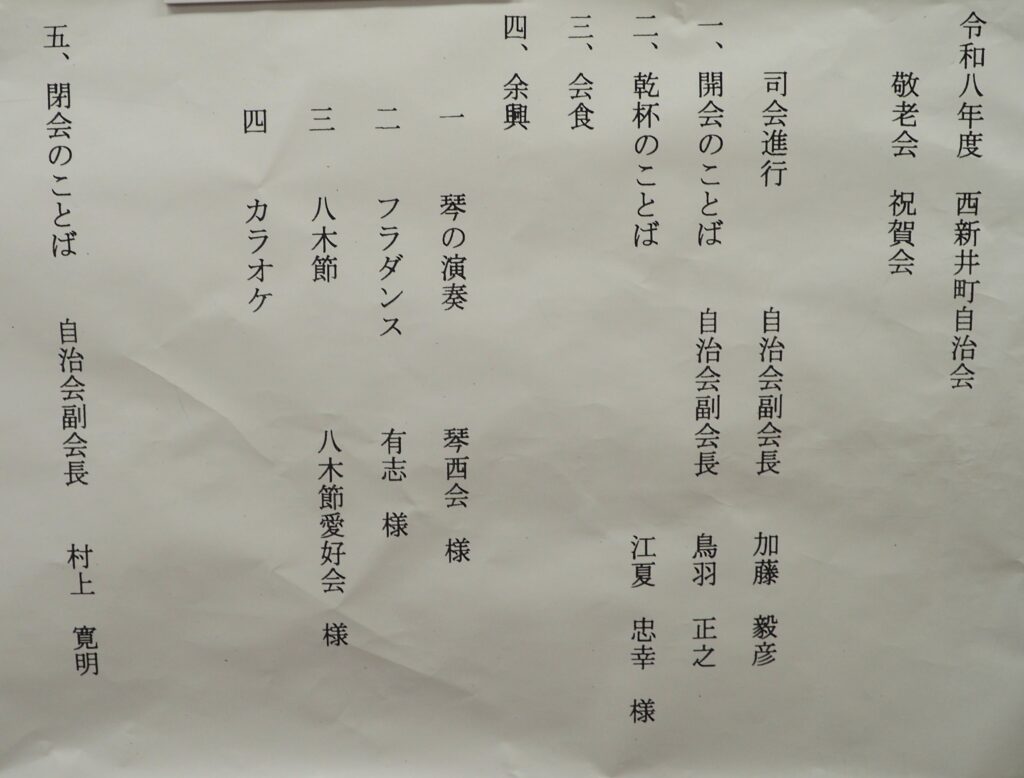 令和八年度 西新井町自治会
敬老会 祝賀会
司会進行 自治会副会長 加藤 毅彦
一、開会のことば 自治会副会長 鳥羽 正之
二、乾杯のことば 江夏 忠幸 様
三、会食
四、余興
一 琴の演奏 琴西会 様
二 フラダンス 有志 様
三 八木節 八木節愛好会 様
四 カラオケ
五、閉会のことば 自治会副会長 村上 寛明